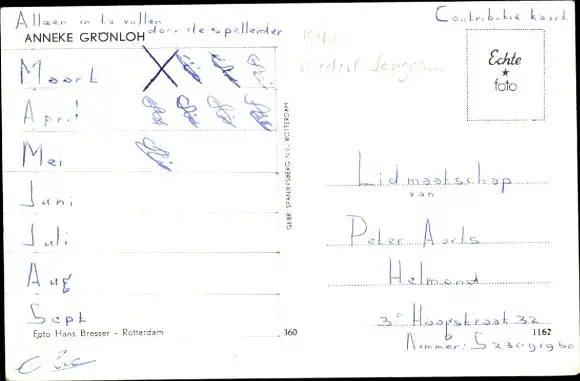 Alleen in te vullen
door de spelleider
ANNEKE GRÖNLOH
Contributie kaart
Echte
foto
Maart
April
Mei
Juni
Juli
Aug
Sept
GEBR. SPANJERSBERG N.V., ROTTERDAM
Lidmaatschap
van
Peter Aarts
Helmond
3e Haagstraat 32
Nummer: S23091950
Foto Hans Bresser - Rotterdam
360
1162